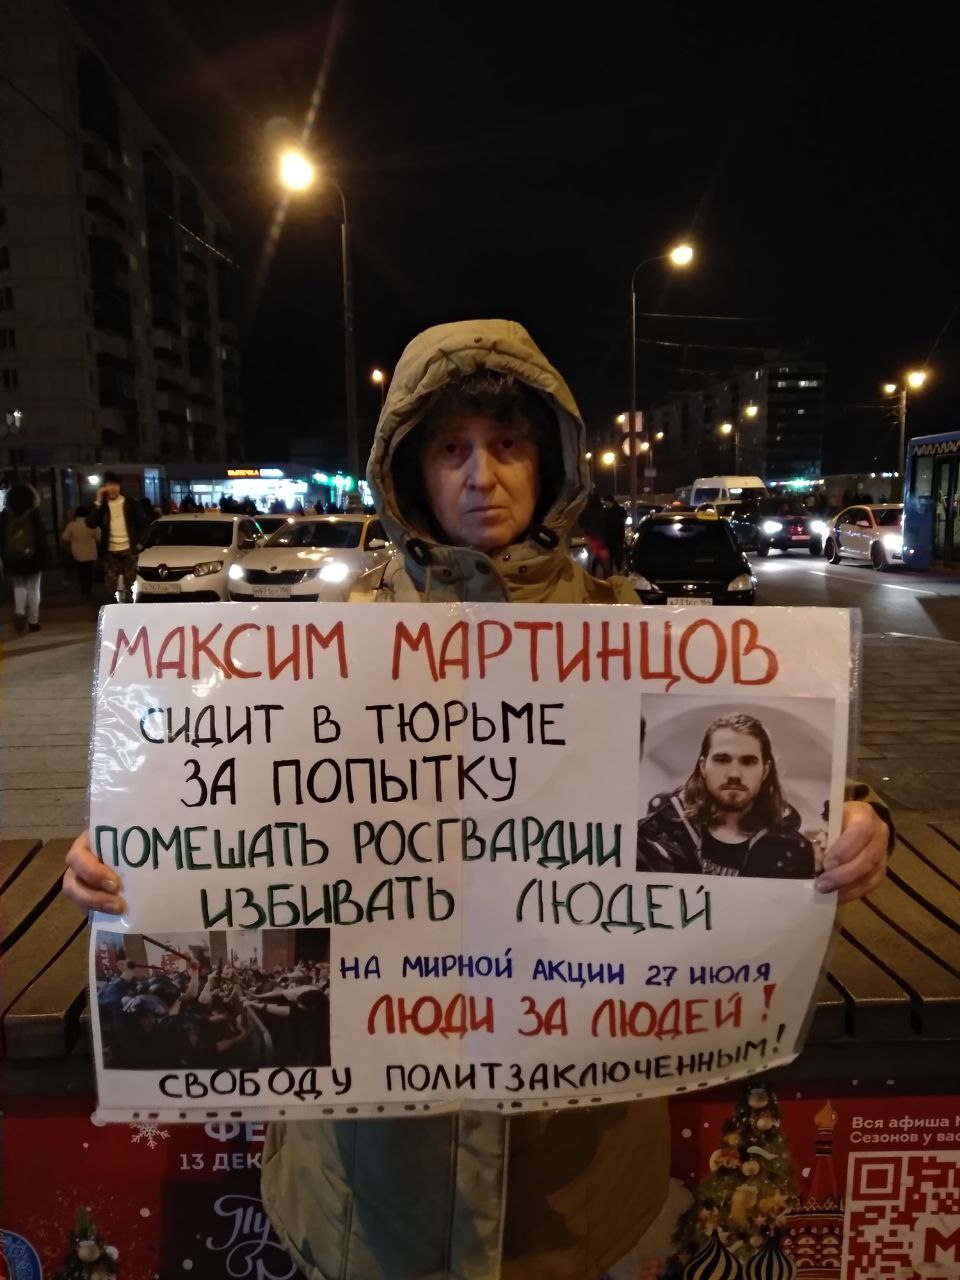 ВЫПЕЧКА
МАКСИМ МАРТИНЦОВ
СИДИТ В ТЮРЬМЕ
ЗА ПОПЫТКУ
ПОМЕШАТЬ РОСГВАРДИИ
ИЗБИВАТЬ ЛЮДЕЙ
НА МИРНОЙ АКЦИИ 27 ИЮЛЯ
ЛЮДИ ЗА ЛЮДЕЙ!
СВОБОДУ ПОЛИТЗАКЛЮЧЕННЫМ!
ФЕ
13 ДЕК
Пу
Вся афиша М
Сезонов у вас